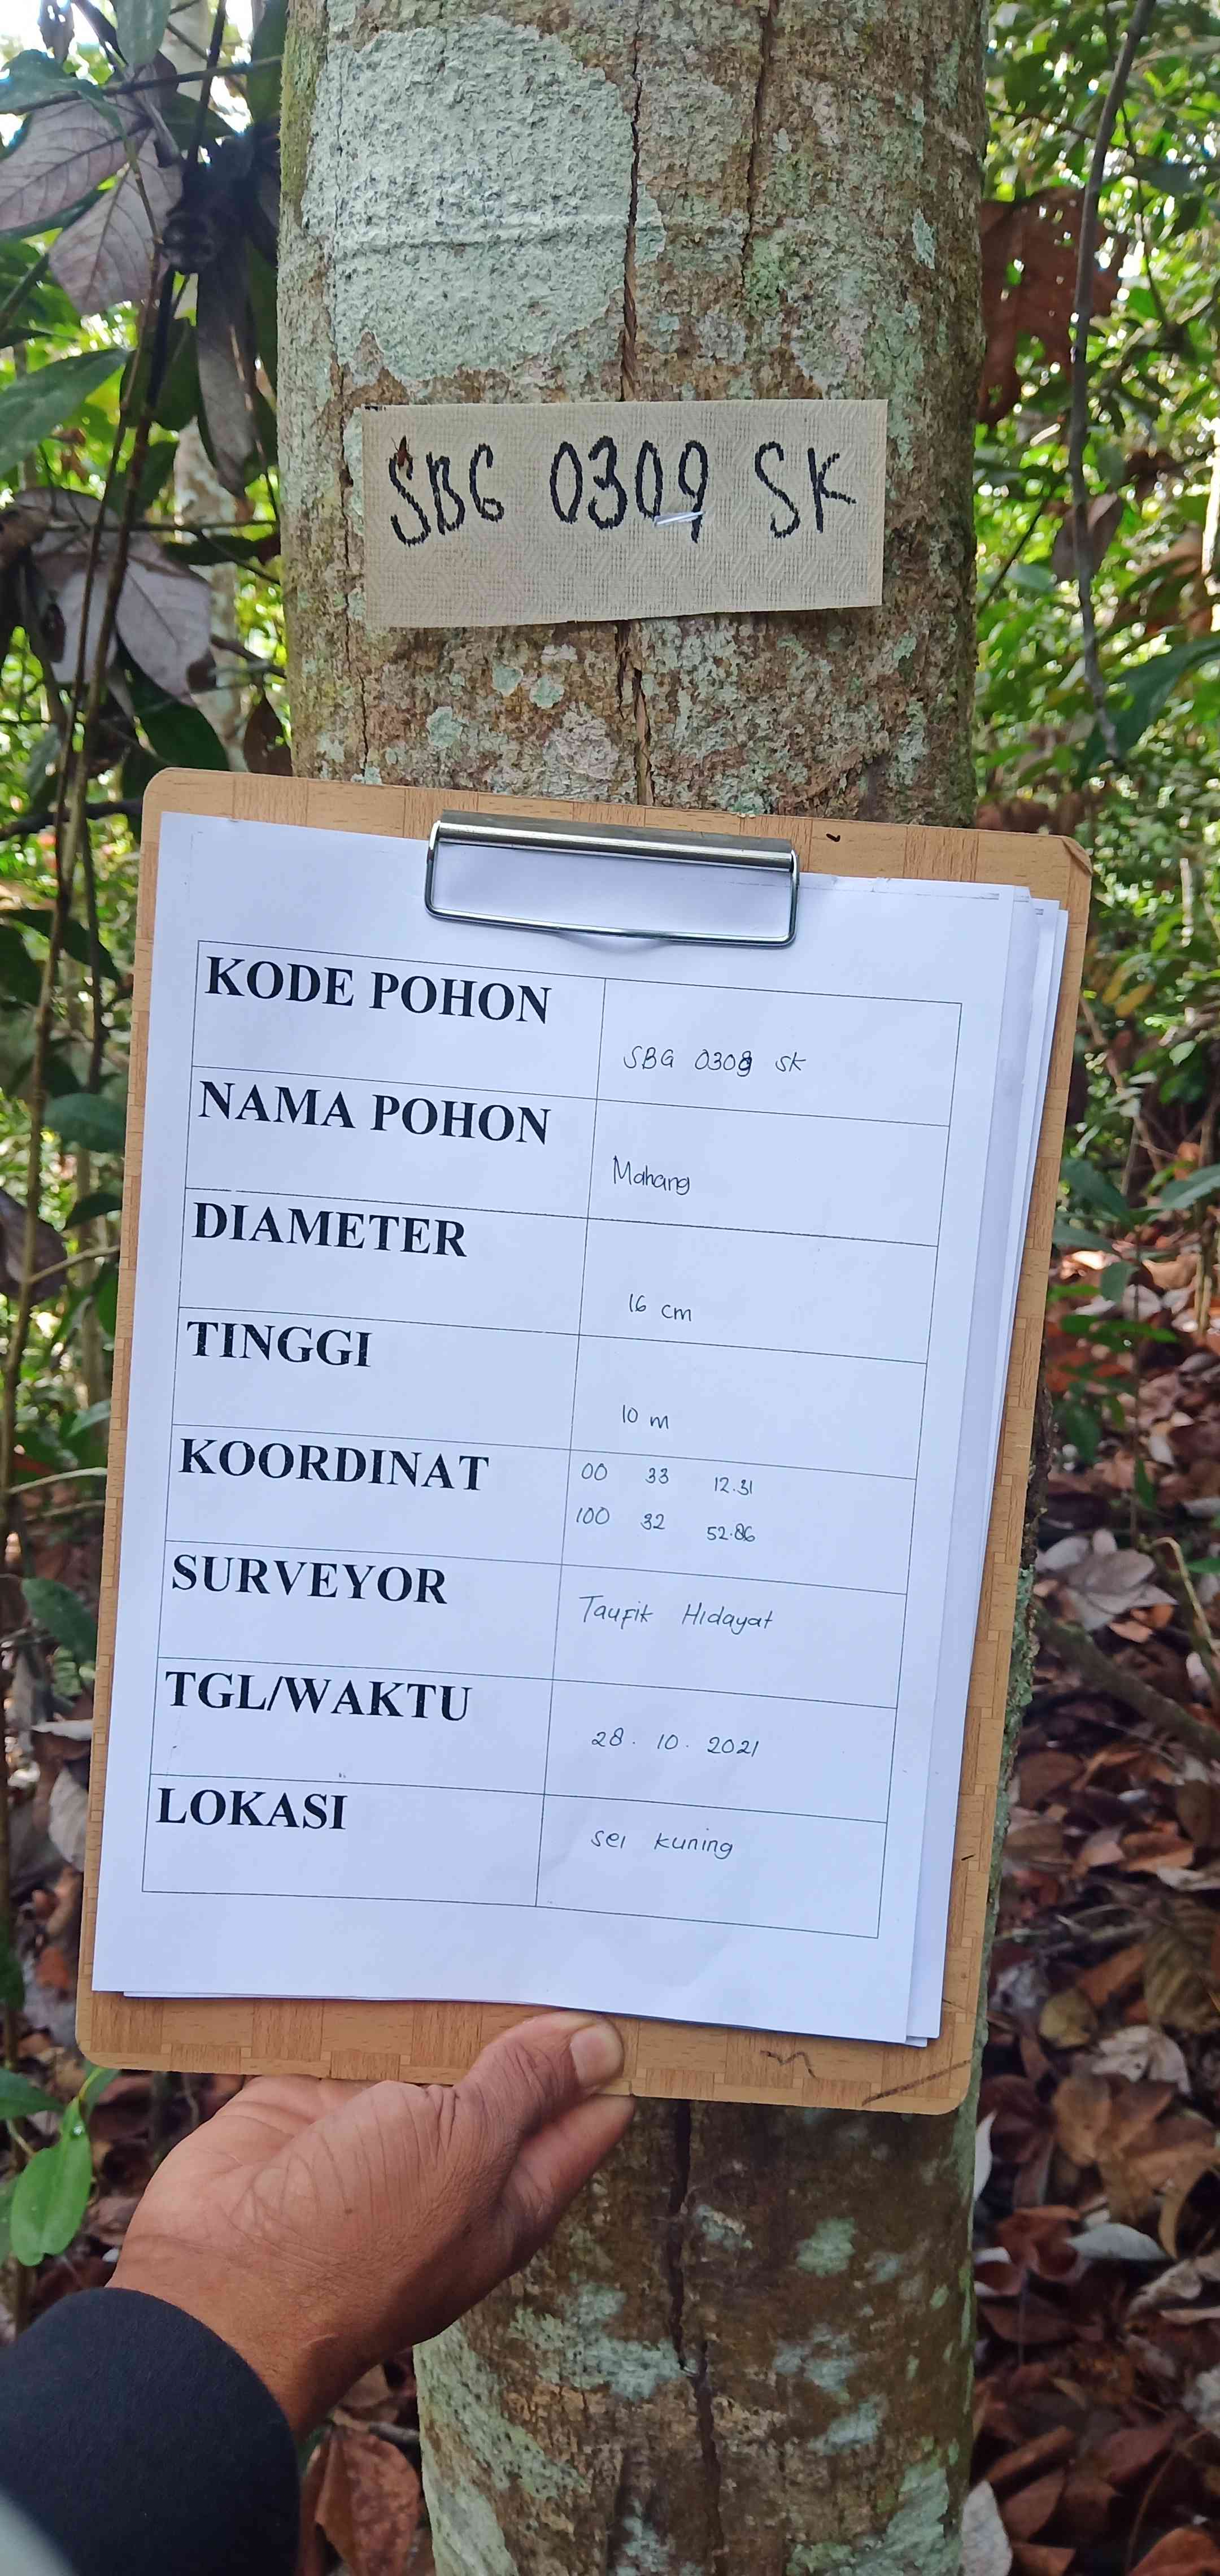 SBG 0309 SK
KODE POHON
SBG 0309 SK
NAMA POHON
Mahang
DIAMETER
16 cm
TINGGI
10 m
KOORDINAT
00 33 12.31
100 32 52.86
SURVEYOR
Taufik Hidayat
TGL/WAKTU
28. 10. 2021
LOKASI
sei kuning